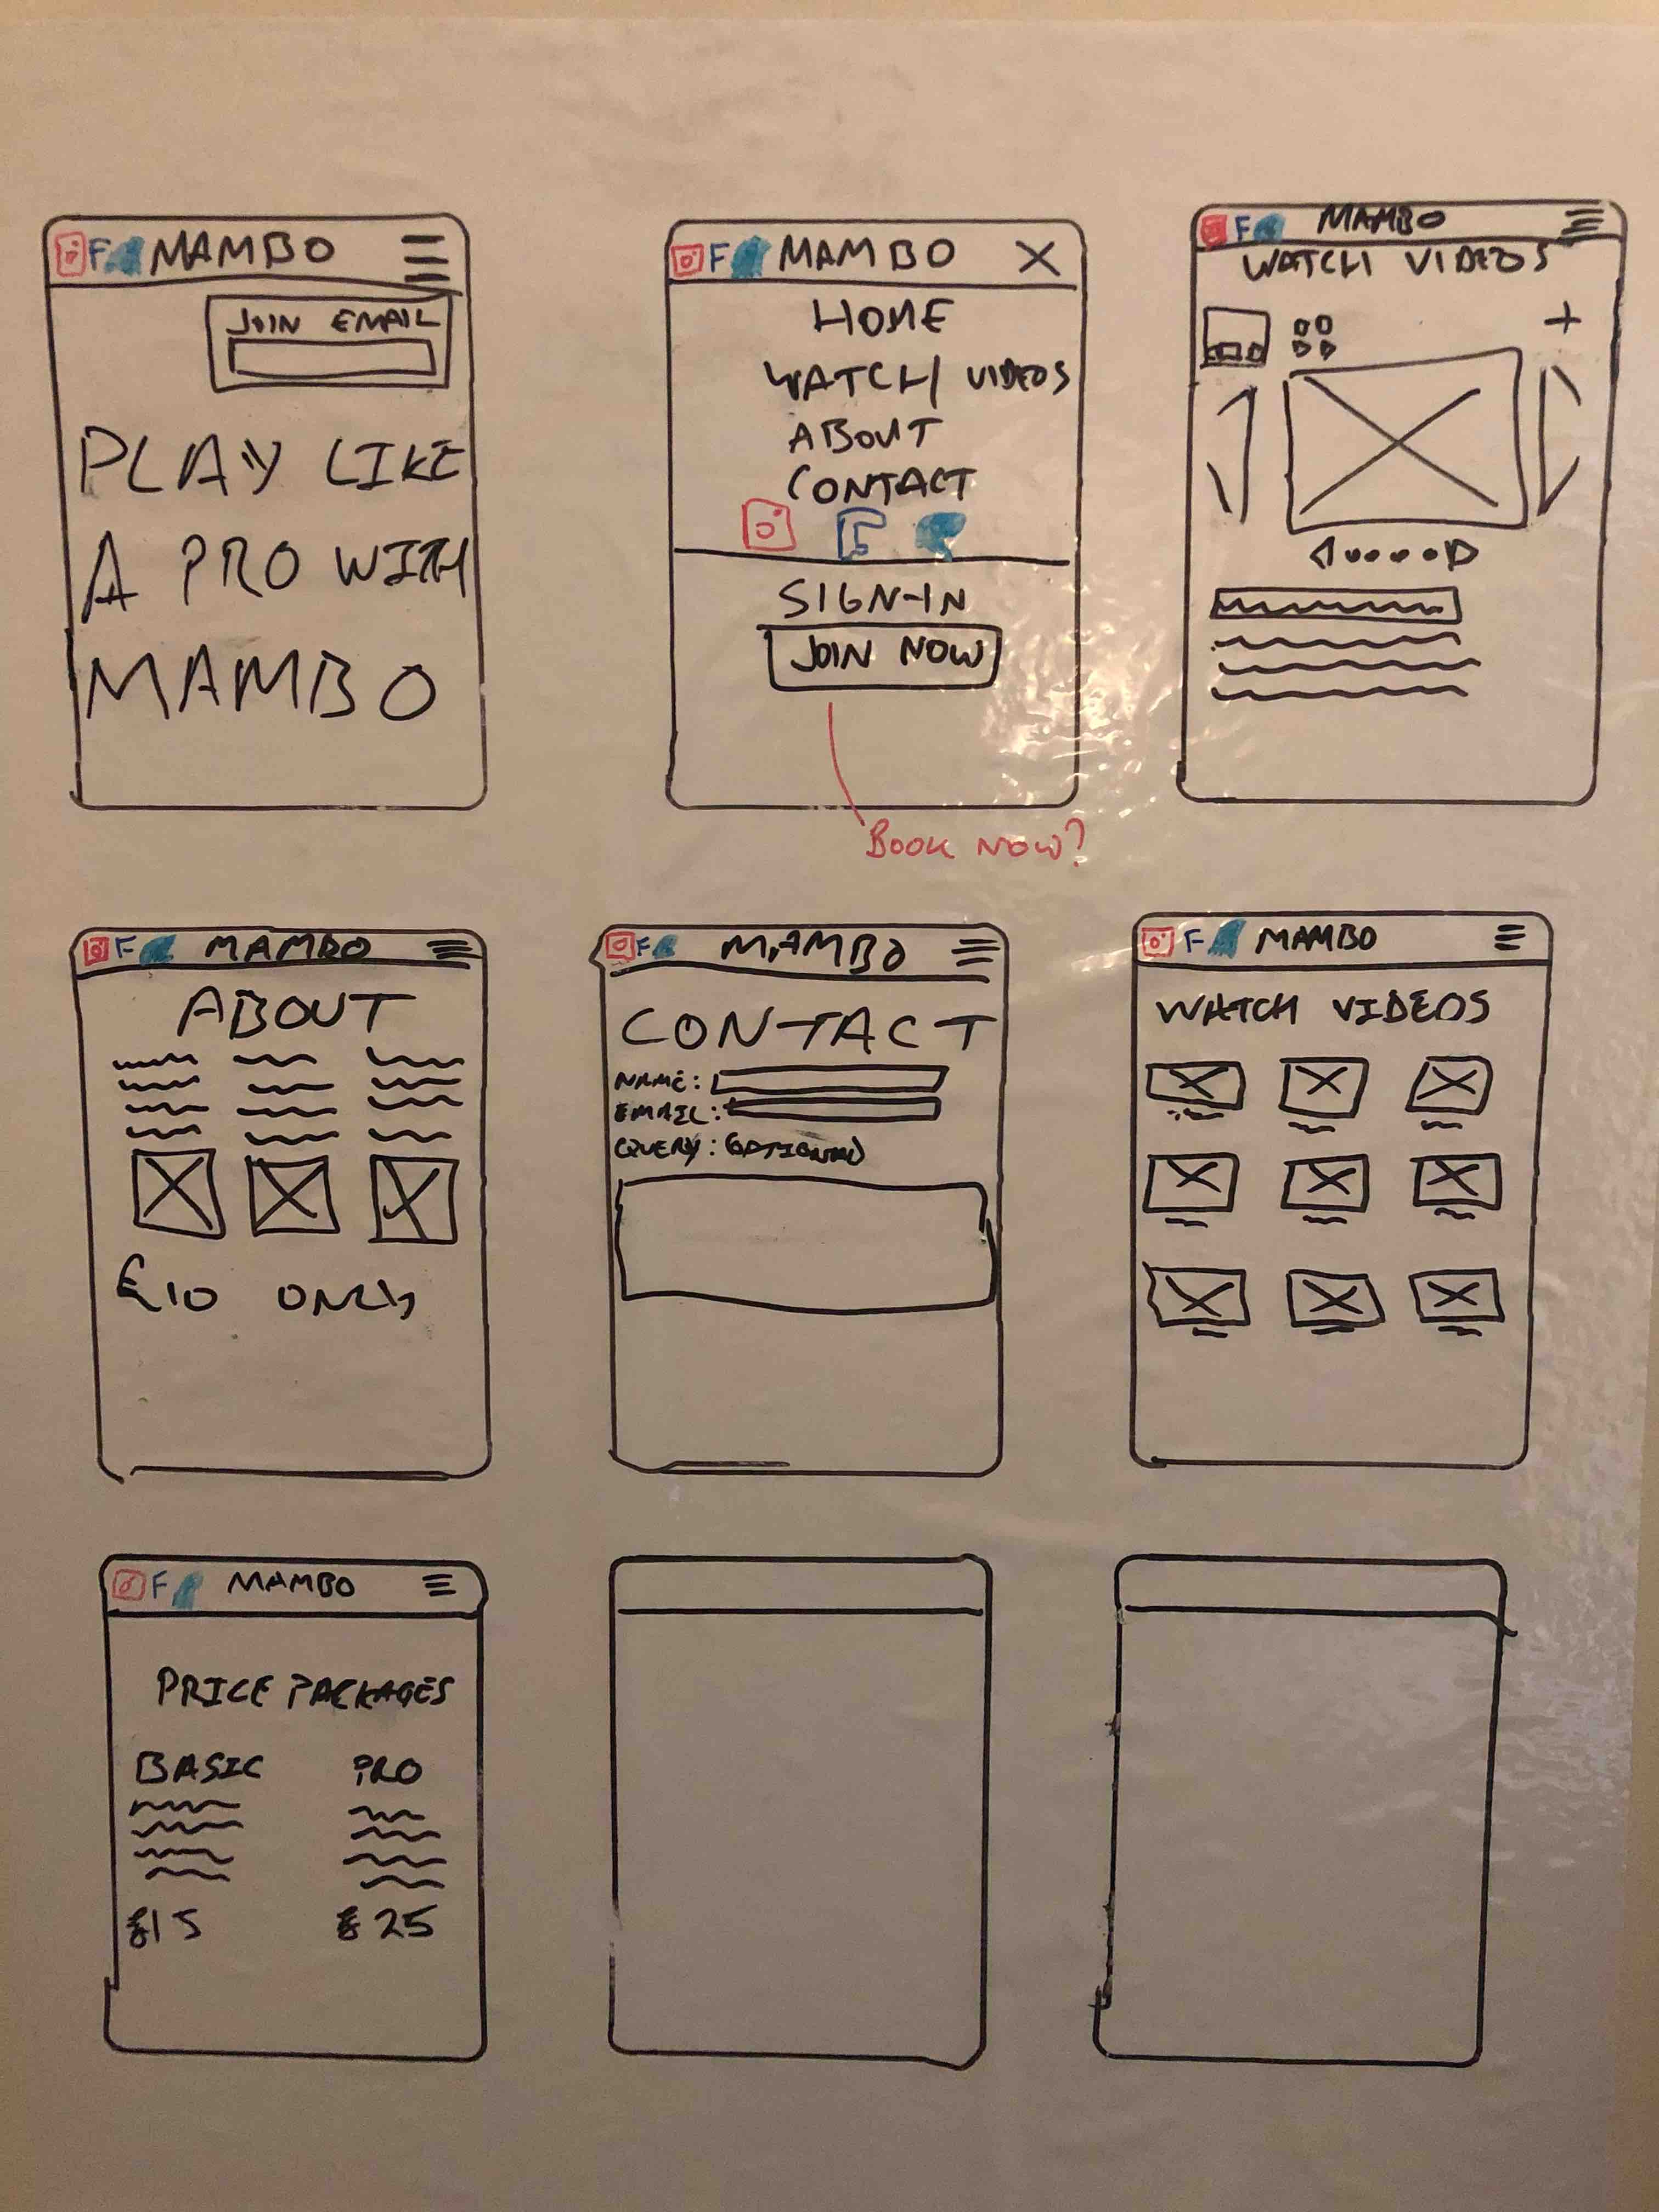 F MAMBO
JOIN EMAIL
PLAY LIKE
A PRO WITH
MAMBO
F MAMBO X
HOME
WATCH VIDEOS
ABOUT
CONTACT
F
SIGN-IN
JOIN NOW
BOOK NOW?
F MAMBO
WATCH VIDEOS
+
F MAMBO
ABOUT
£10 ONLY
F MAMBO
CONTACT
NAME:
EMAIL:
QUERY: (OPTIONAL)
F MAMBO
WATCH VIDEOS
F MAMBO
PRICE PACKAGES
BASIC PRO
£15 £25